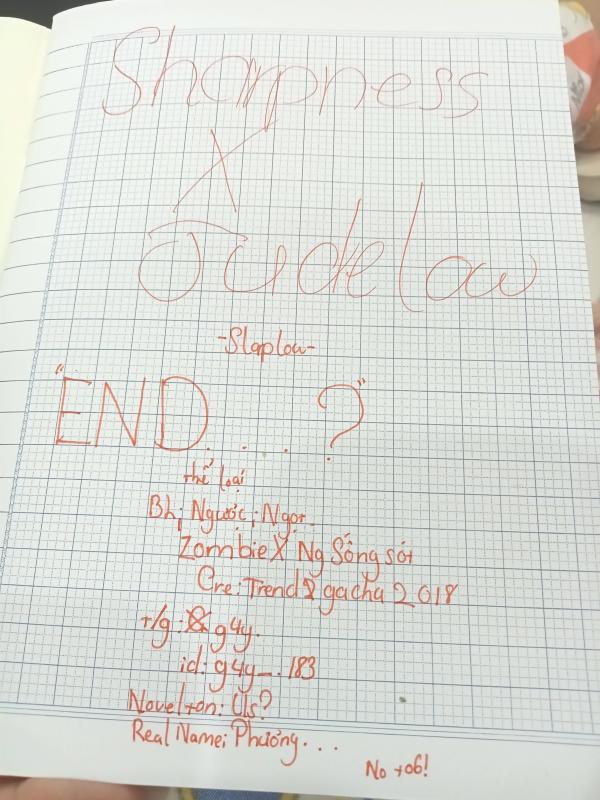 Sharpness
X
Judelow
-Slaplow-
"END....?"
thể loại
Bh; Ngược; Ngọt.
Zombie X Ng Sống sót
Cre: Trend & gacha 2018
t/g: & g4y.
id: g4y_.183
Noveltoon: Us?
Real Name: Phương...
No +06!